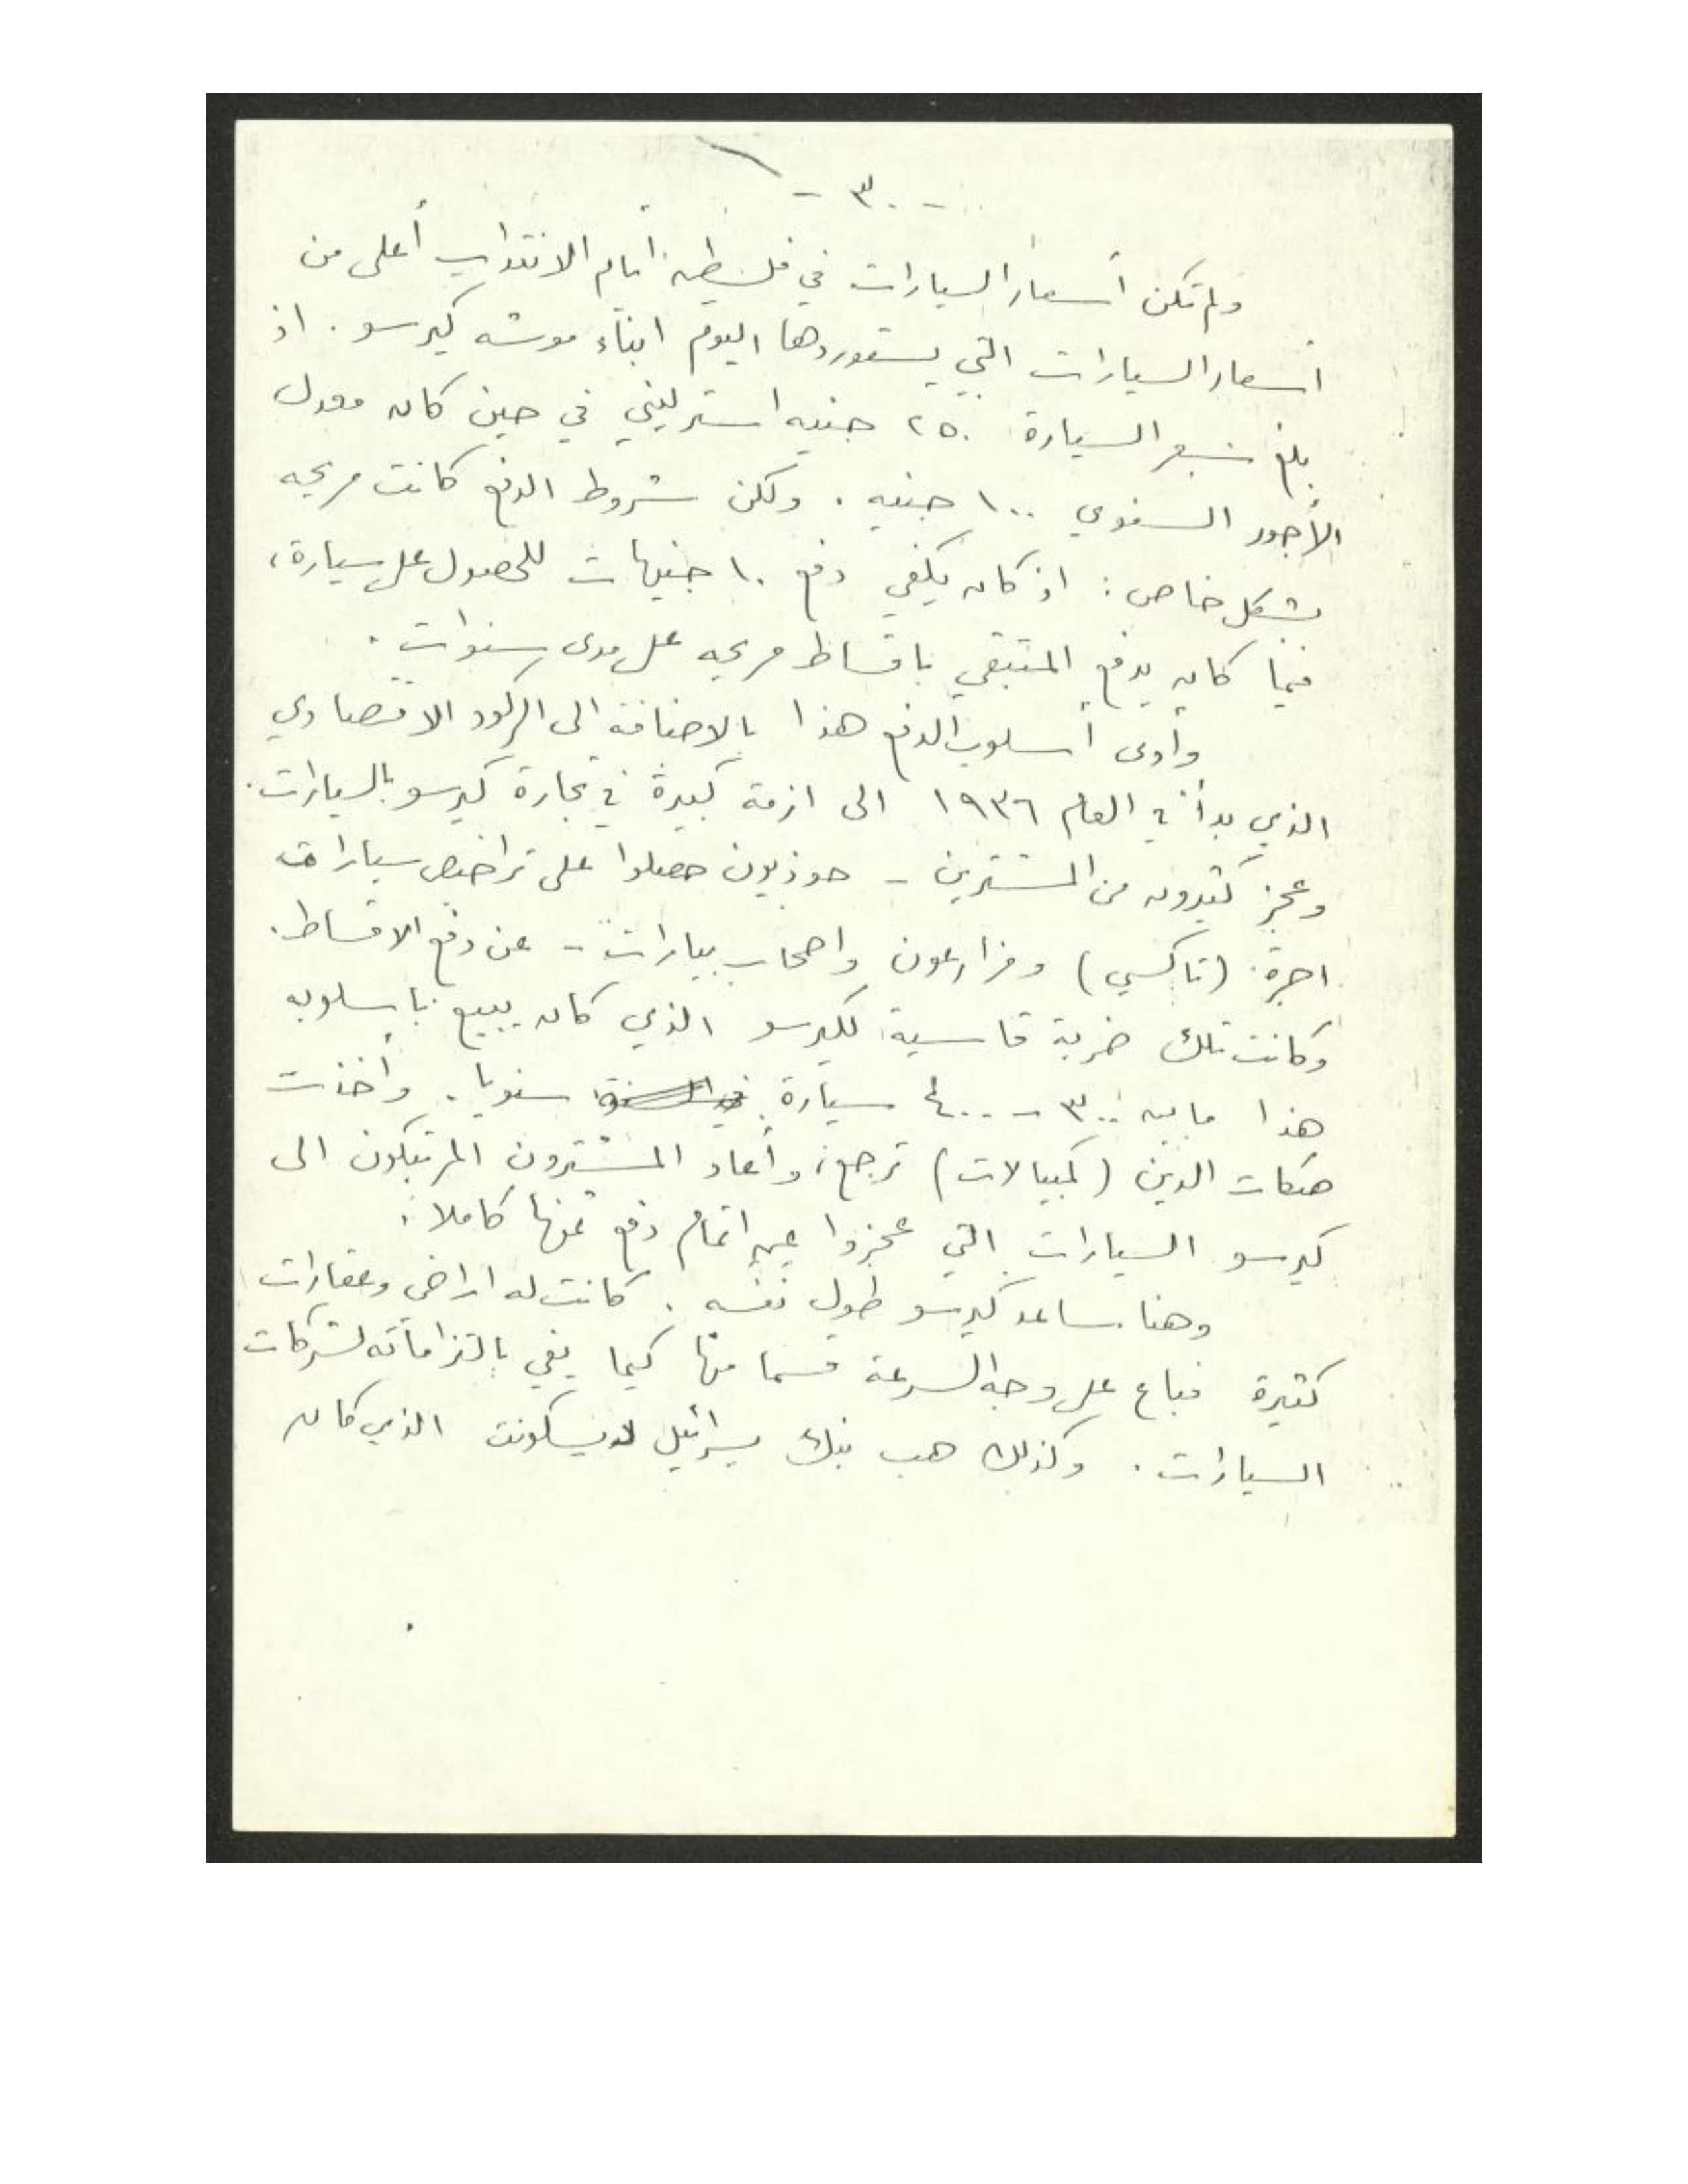 - ٣٠ -
ولم تكن أسعار السيارات في فلسطين أيام الانتداب أعلى من
أسعار السيارات التي يستوردها اليوم ابناء موشه كيرسو. اذ
بلغ سعر السيارة ٢٥٠ جنيه استرليني في حين كان معدل
الأجور السنوي ١٠٠ جنيه. ولكن شروط الدفع كانت مريحه
بشكل خاص: اذ كان يكفي دفع ١٠ جنيهات للحصول على سيارة،
فيما كان يدفع المتبقي باقساط مريحه على مدى سنوات.
وأدى أسلوب الدفع هذا بالاضافة الى الركود الاقتصادي
الذي بدأ في العام ١٩٣٦ الى ازمة كبيرة في تجارة كيرسو بالسيارات.
وعجز كثيرون من المشترين - حوذيون حصلوا على تراخيص سيارات
اجرة (تاكسي) ومزارعون واصحاب بيارات - عن دفع الاقساط.
وكانت تلك ضربة قاسية لكيرسو الذي كان يبيع باسلوبه
هذا ما بين ٣٠٠ - ٤٠٠ سيارة في السنة سنويا. وأخذت
صكات الدين (كمبيالات) ترجع، وأعاد المشترون المرتبكون الى
كيرسو السيارات التي عجزوا عن اتمام دفع ثمنها كاملا.
وهنا ساعد كيرسو طول نفسه. كانت له اراضي وعقارات
كثيرة فباع على وجه السرعة قسما منها كيما يفي بالتزاماته لشركات
السيارات. وكذلك هب بنك يسرائيل ديسكونت الذي كان